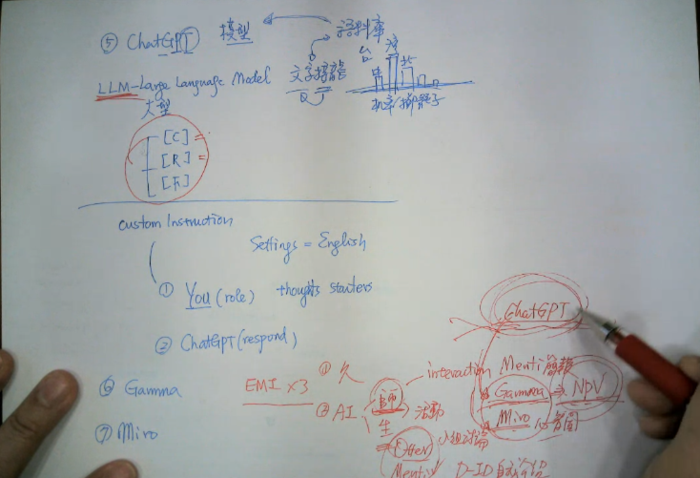 ⑤ ChatGPT 模型 語料庫
LLM-Large Language Model 文字接龍
大型
台 灣 北
機率/擲骰子
[C]=
[R]=
[F]
custom Instruction
Settings = English
① You (role) thoughts starters
② ChatGPT (respond)
ChatGPT
⑥ Gamma
⑦ Miro
EMI x3
① 人
② AI
師
生
interaction Menti
Gamma → NPV
Miro 心智圖
Otter 小組討論
Menti D-ID